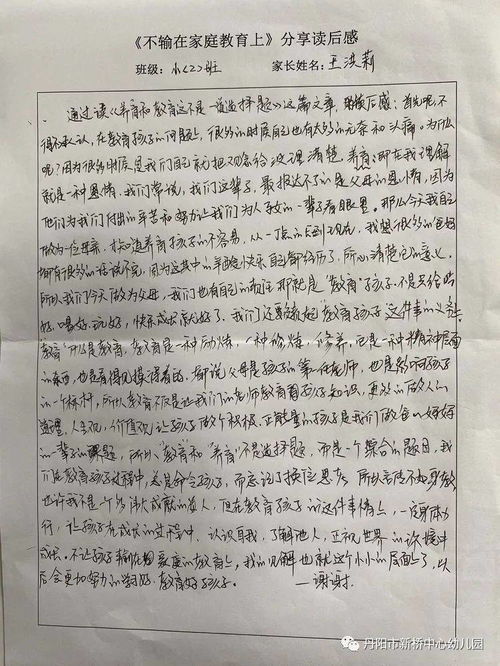 《不输在家庭教育上》分享读后感
班级：小〈2〉班 家长姓名：王洪莉
通过读《养育和教育这不是一道选择题》这篇文章，有感：首先呢，不
得不承认，在教育孩子的问题上，很多的时候自己也有太多的无奈和头痛。为什么
呢？因为很多时候是我们自己就把观念给没理清楚，养育：那在我理解
就是一种恩情，我们常说，我们这辈子，最报达不了的是父母的恩情，因为
他们为我们付出的辛苦和努力让我们为人子女的一辈子看眼里。那么今天我自己
做为一位母亲，知道养育孩子的不容易，从一点点到现在，我想很多的爸妈
都有很多的话说不完，因为这其中的辛酸快乐自己都经历了，所以清楚它的意义。
所以我们今天做为父母，我们也有自己的责任那就是"教育"孩子，不是只给吃
好、喝好、玩好，快乐成长就好了。我们还要清楚"教育孩子"这件事的义务，
教育，什么是教育，教育是一种历炼，一种修炼，修养，它是一种精神层面
的东西，也是看得见摸得着的，都说父母是孩子的第一任老师，也是影响孩子
的一个榜样，所以教育不仅是让我们的老师教育孩子知识，更多的做人的
道理，人生观，价值观，让孩子做个积极、正能量的孩子是我们做爸妈妈
的一辈子的课题，所以"教育"和"养育"不是选择题，而是一个综合的题目，我
们在教育孩子过程中，总是命令孩子，而忘记了换位思考，所以言传不如身教，
也许我不是一个多伟大成就的家人，但在教育孩子的这件事情上，一定身体力
行，让孩子在成长的过程中，认识自我，了解他人，正视世界的环境中
成长。不让孩子输在家庭的教育上，我的见解也就这个小小的层面上了，以
后会更加努力的学习好，教育好孩子。 —谢谢.
丹阳市新桥中心幼儿园